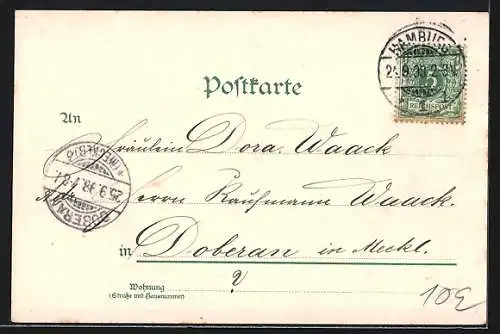 HAMBURG
24.9.98.2-3N
5
REICHSPOST
Postkarte
An
Fräulein Dora Waack
Herrn Kaufmann Waack.
in Doberan in Meckl.
DOBERAN
25.9.98.7-8V.
* (MECKLBG) *
Wohnung
(Straße und Hausnummer)
10E